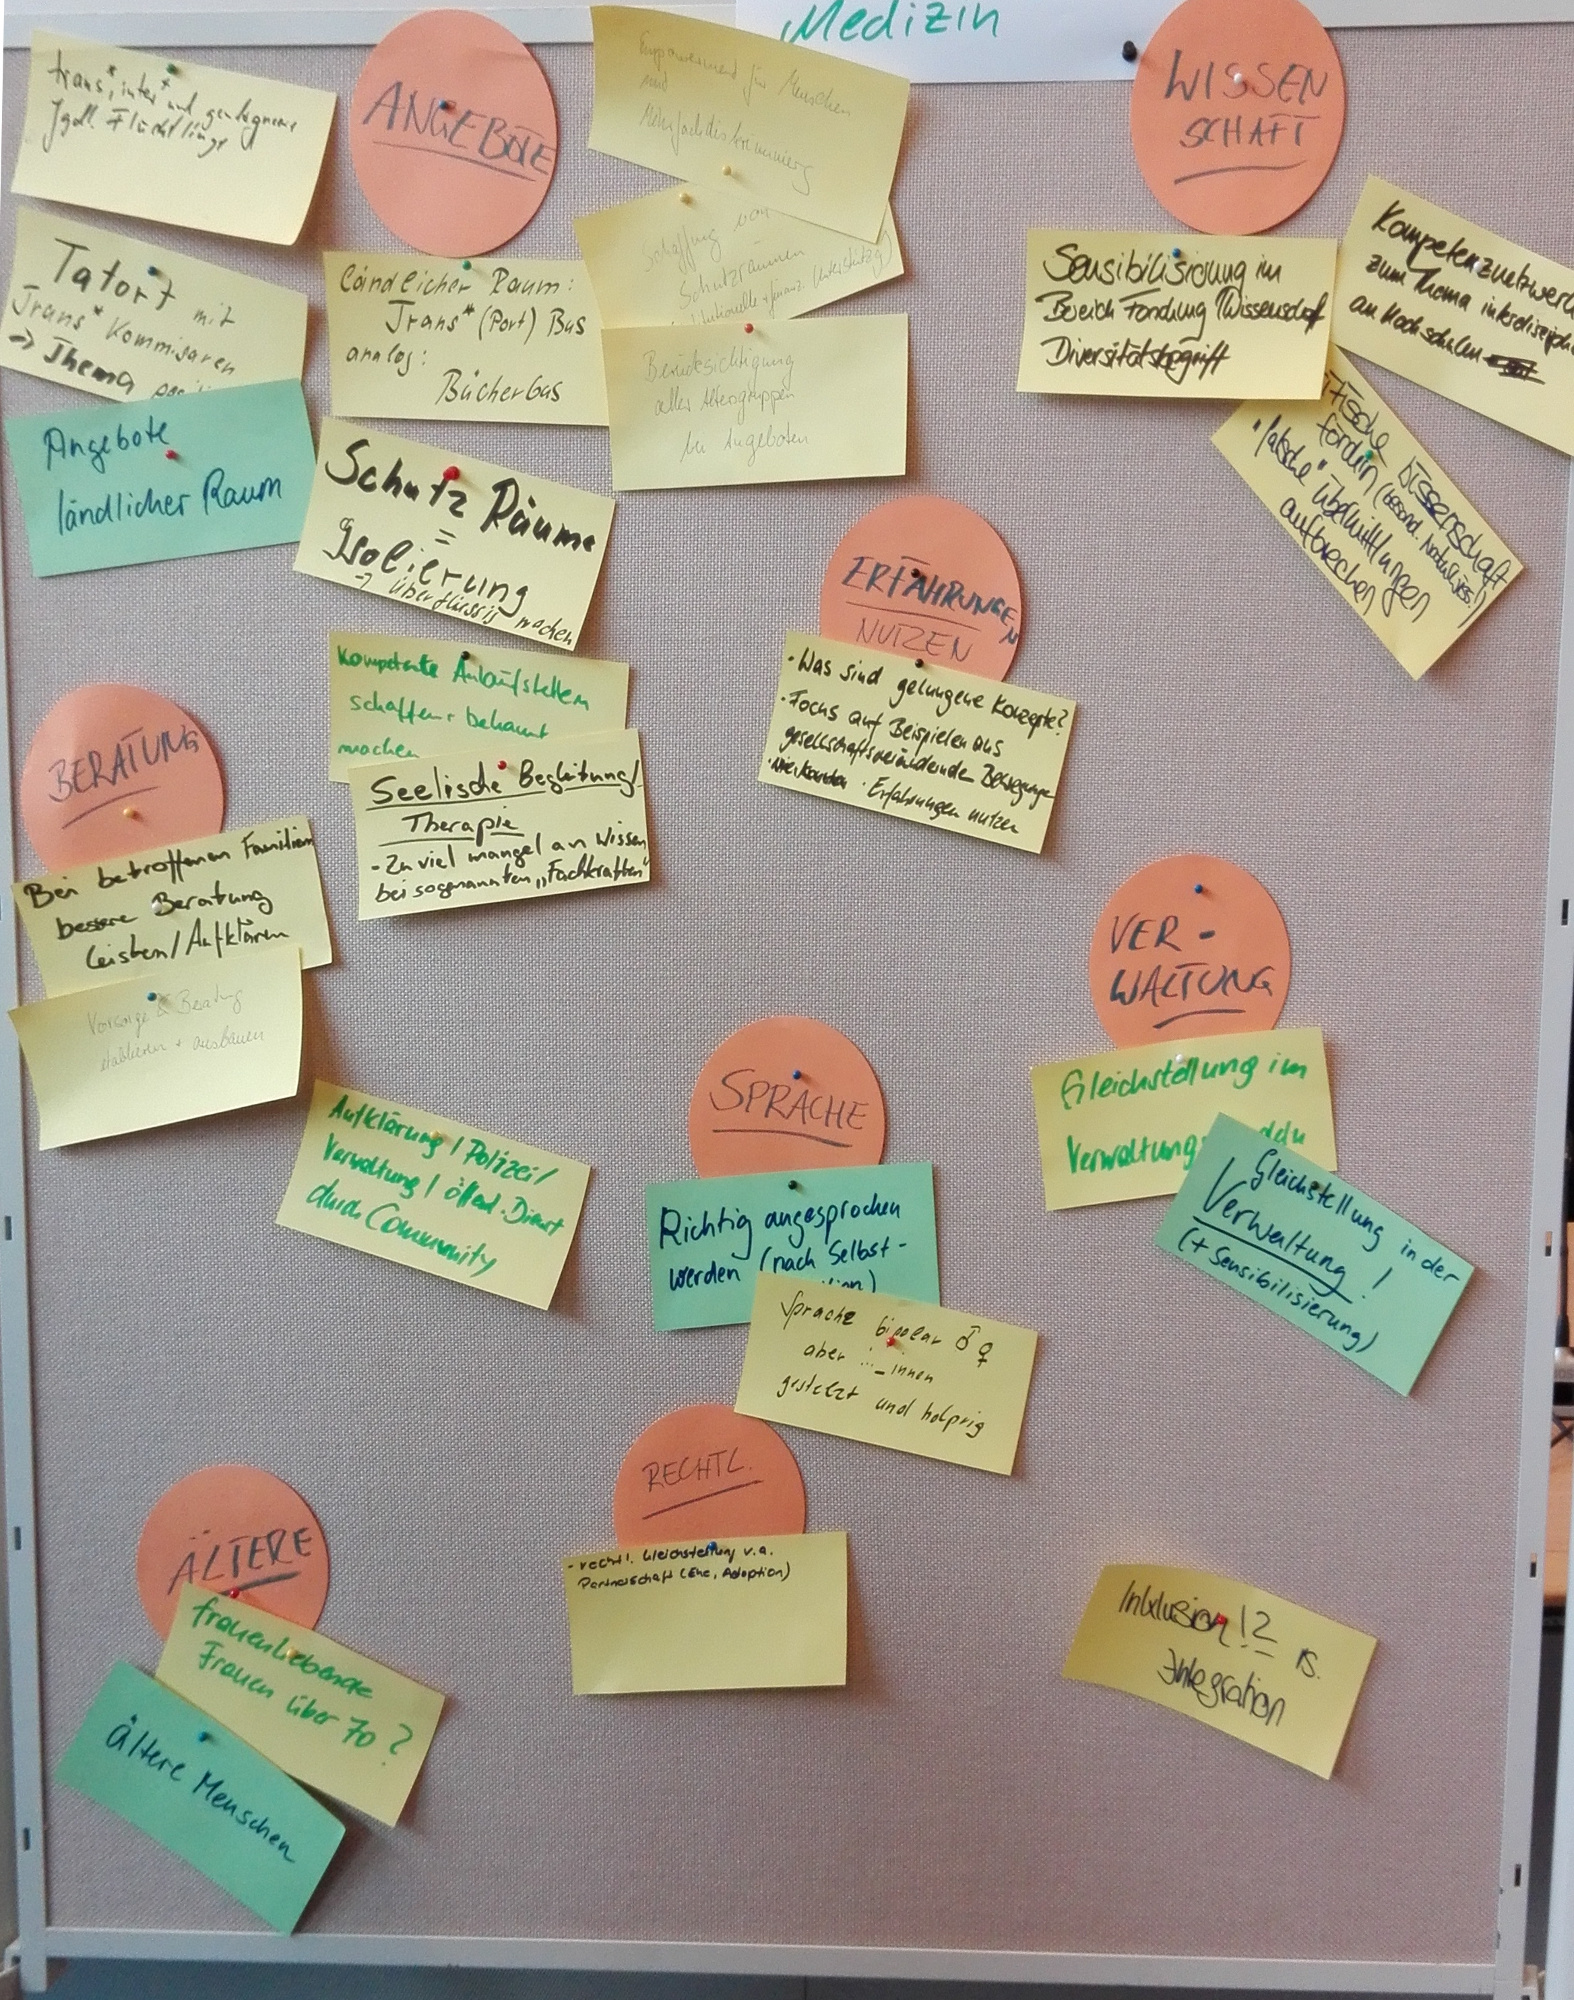 Medizin
ANGEBOTE
trans*, inter* und
Jgdl. Flüchtlinge
Tatort mit
Trans* Kommisaren
-> Thema
Angebote
ländlicher Raum
Ländlicher Raum:
Trans* (Port) Bus
analog:
Bücherbus
Empowerment für Menschen
mit
Schaffung von
Schutzräumen
Berücksichtigung
aller Altersgruppen
bei Angeboten
Schutz Räume
=
Isolierung
-> überflüssig machen
kompetente Anlaufstellen
schaffen + bekannt
machen
Seelische Begleitung/
Therapie
- Zu viel mangel an Wissen
bei sogenannten „Fachkräften"
WISSEN
SCHAFT
Sensibilisierung im
Bereich Forschung/Wissenschaft
Diversitätsbegriff
Kompetenznetzwerk
zum Thema
an Hochschulen
Wissenschaft
fördern (besond. Naturwiss.!)
"falsche" Übermittlungen
aufbrechen
ERFAHRUNGEN
NUTZEN
• Was sind gelungene Konzepte?
• Focus auf Beispielen aus
gesellschaftsverändernde Bewegungen
• Erfahrungen nutzen
BERATUNG
Bei betroffenen Familien
bessere Beratung
leisten/Aufklären
Vorsorge & Beratung
etablieren + ausbauen
Aufklärung / Polizei/
Verwaltung / öffentl. Dienst
durch Community
VER-
WALTUNG
Gleichstellung im
Verwaltungs
Gleichstellung in der
Verwaltung!
(+ Sensibilisierung)
SPRACHE
Richtig angesprochen
werden (nach Selbst-
Sprache bipolar ♂ ♀
aber ..._innen
gestelzt und holprig
RECHTL.
- rechtl. Gleichstellung v.a.
Partnerschaft (Ehe, Adoption)
ÄLTERE
frauenliebende
Frauen über 70?
ältere Menschen
Inklusion !?
Integration